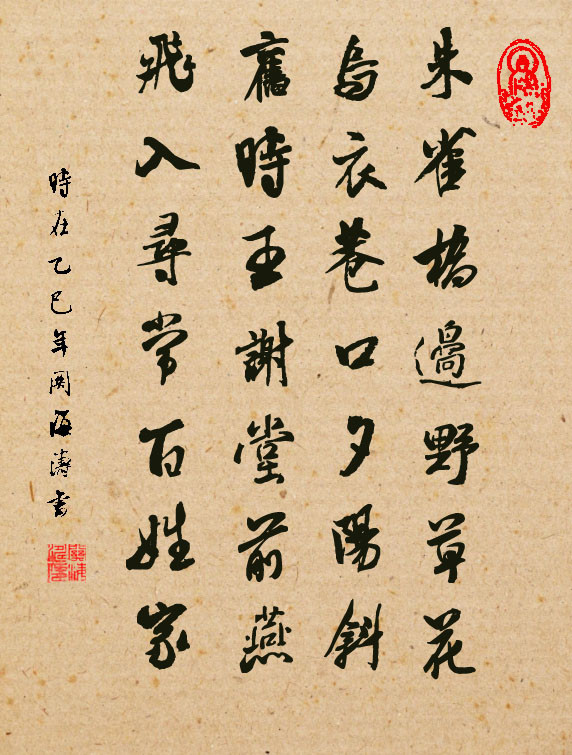 朱雀橋邊野草花
烏衣巷口夕陽斜
舊時王謝堂前燕
飛入尋常百姓家
時在乙巳年関海濤書